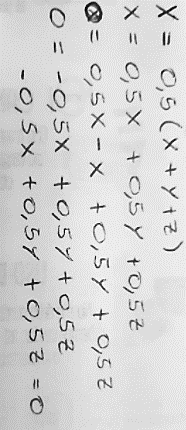 X = 0,5 (x + y + z)
x = 0,5x + 0,5y + 0,5z
0 = 0,5x - x + 0,5y + 0,5z
0 = -0,5x + 0,5y + 0,5z
-0,5x + 0,5y + 0,5z = 0